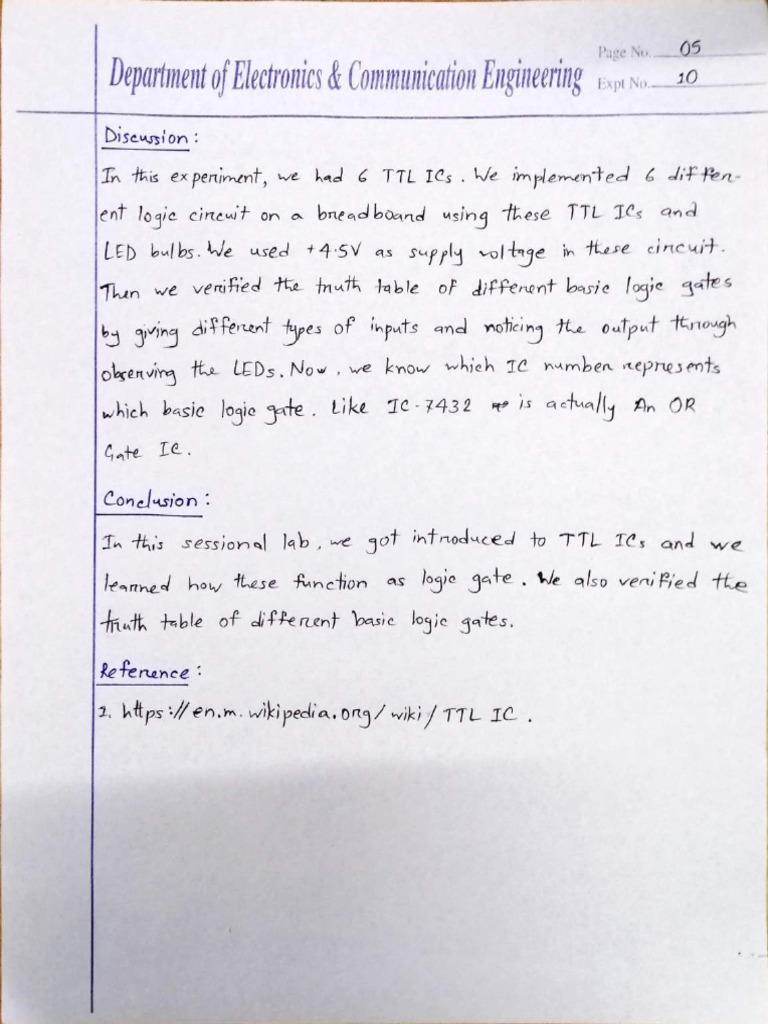 Department of Electronics & Communication Engineering
Page No. 05
Expt No. 10
Discussion :
In this experiment, we had 6 TTL ICs. We implemented 6 differ-
ent logic circuit on a breadboard using these TTL ICs and
LED bulbs. We used +4.5V as supply voltage in these circuit.
Then we verified the truth table of different basic logic gates
by giving different types of inputs and noticing the output through
observing the LEDs. Now, we know which IC number represents
which basic logic gate. Like IC-7432 is actually An OR
Gate IC.
Conclusion :
In this sessional lab, we got introduced to TTL ICs and we
learned how these function as logic gate. We also verified the
truth table of different basic logic gates.
Reference :
1. https://en.m.wikipedia.org/wiki/TTL IC.